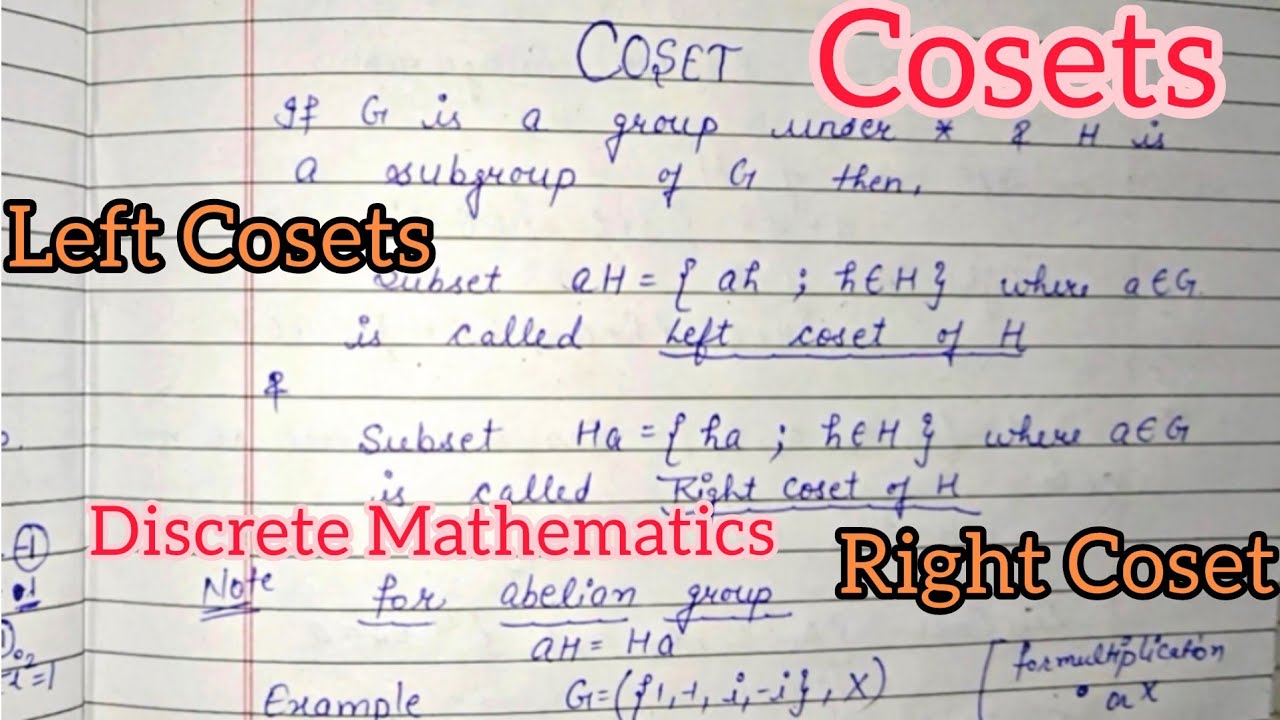 COSET
Cosets
If G is a group under * & H is
a subgroup of G then,
Left Cosets
Subset aH = { ah ; h∈H } where a∈G
is called Left coset of H
&
Subset Ha = { ha ; h∈H } where a∈G
is called Right coset of H
Discrete Mathematics
Right Coset
Note for abelian group
aH = Ha
Example G=({1,-1,i,-i}, X)
for multiplication